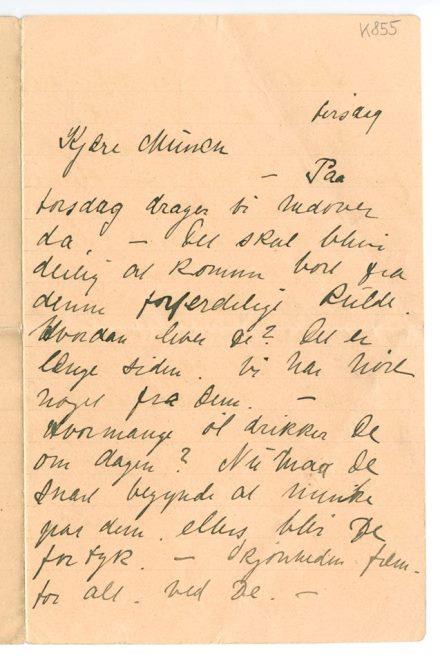 K855
tirsdag
Kjære Munch
— Paa
torsdag drager vi nedover
da. — Det skal blive
deilig at komme bort fra
denne forferdelige Kulde.
Hvordan lever De? Det er
længe siden vi har hørt
noget fra Dem. —
Hvormange øl drikker De
om dagen? Nu maa De
snart begynde at minke
paa dem. ellers blir De
for tyk. — skjønheden frem-
for alt. ved De. —